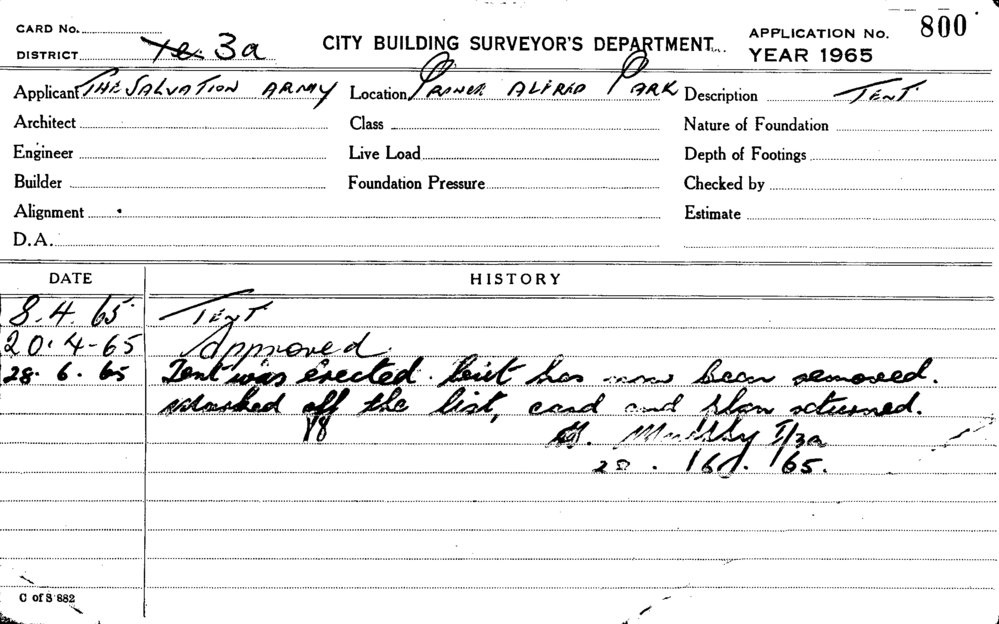 CARD No.
800
CITY BUILDING SURVEYOR'S DEPARTMENT
APPLICATION No.
YEAR 1965
DISTRICT 3a
Applicant THE SALVATION ARMY Location PRINCE ALFRED PARK Description TENT
Architect Class Nature of Foundation
Engineer Live Load Depth of Footings
Builder Foundation Pressure Checked by
Alignment Estimate
D.A.
DATE HISTORY
8.4.65 TENT
20.4-65 Approved
28.6.65 Tent was erected but has now been removed.
Marked off the list, card and plan returned.
I/3a
28. 6. 65.
C of S 882